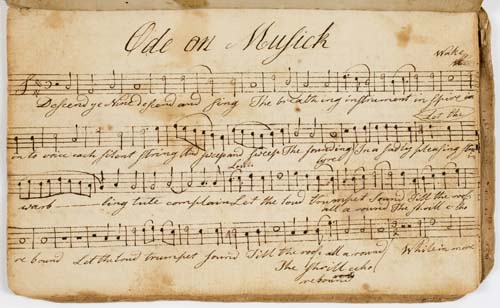 Ode on Musick
Wake
Descend ye Nine descend and sing The breathing instrument inspire in
Let the
in to voice each silent string and sweep The sounding lyre In a sadly pleasing
warb ling lute complain Let the loud trumpet sound Till the roofs
all a round The shrill echo
re bound Let the loud trumpet sound Till the roofs all a round While in more
The Shrill echo
rebound